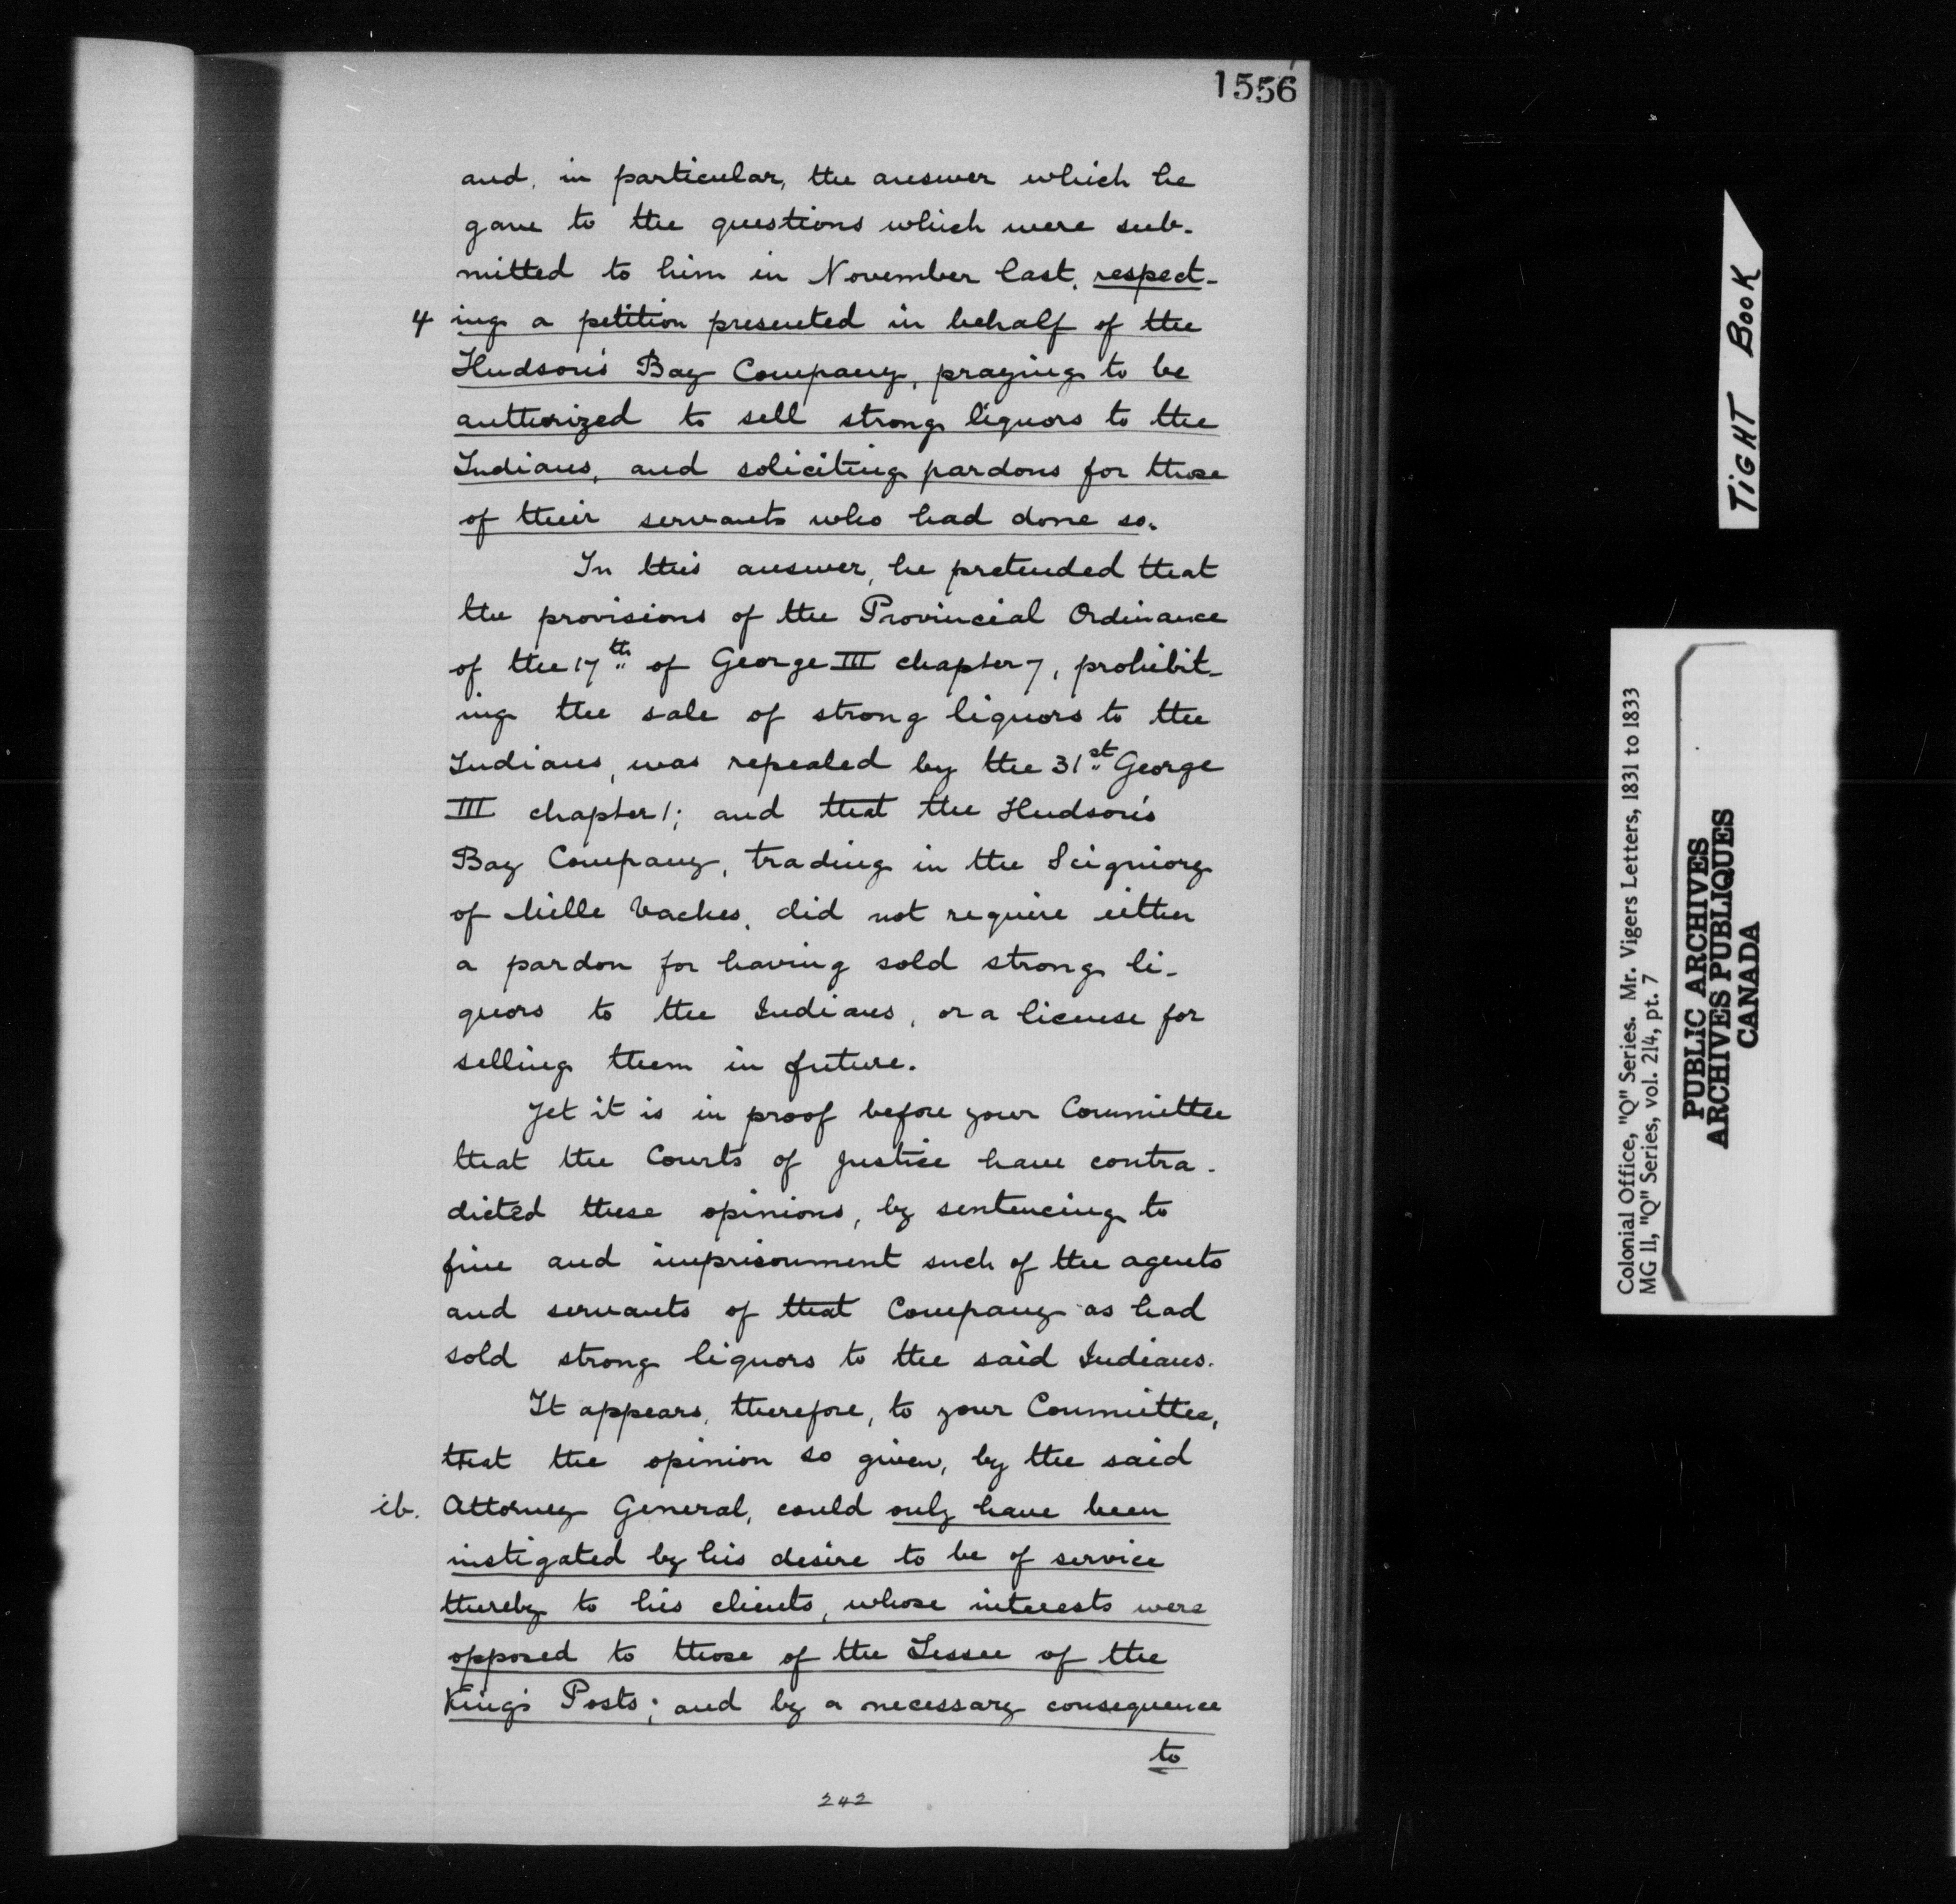 1556
and, in particular, the answer which he
gave to the questions which were sub-
mitted to him in November last, respect-
4 ing a petition presented in behalf of the
Hudson's Bay Company, praying to be
authorized to sell strong liquors to the
Indians, and soliciting pardons for those
of their servants who had done so.
In this answer, he pretended that
the provisions of the Provincial Ordinance
of the 17th of George III chapter 7, prohibit-
ing the sale of strong liquors to the
Indians, was repealed by the 31st George
III chapter 1; and that the Hudson's
Bay Company, trading in the Seigniory
of Mille Vaches, did not require either
a pardon for having sold strong li-
quors to the Indians, or a license for
selling them in future.
Yet it is in proof before your Committee
that the Courts of Justice have contra-
dicted these opinions, by sentencing to
fine and imprisonment such of the agents
and servants of that Company as had
sold strong liquors to the said Indians.
It appears, therefore, to your Committee,
that the opinion so given, by the said
ib. Attorney General, could only have been
instigated by his desire to be of service
thereby to his clients, whose interests were
opposed to those of the Lessee of the
King's Posts; and by a necessary consequence
to
242
TIGHT BOOK
Colonial Office, "Q" Series. Mr. Vigers Letters, 1831 to 1833
MG 11, "Q" Series, vol. 214, pt. 7
PUBLIC ARCHIVES
ARCHIVES PUBLIQUES
CANADA